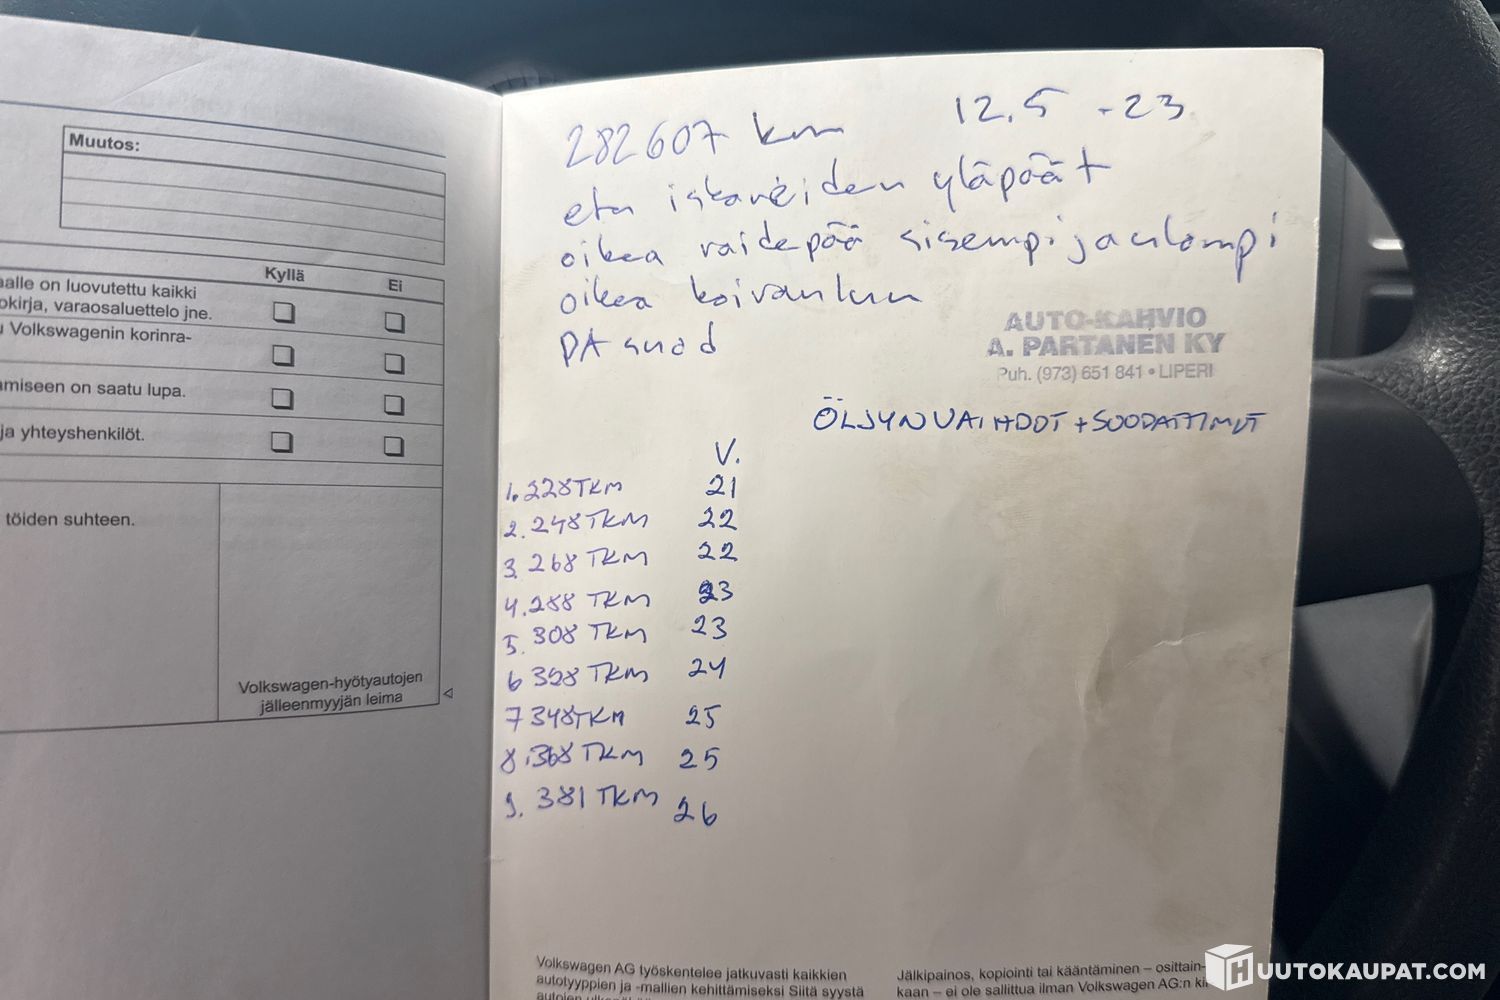 Muutos:
Kyllä Ei
aalle on luovutettu kaikki
okirja, varaosaluettelo jne.
u Volkswagenin korinra-
amiseen on saatu lupa.
ja yhteyshenkilöt.
töiden suhteen.
Volkswagen-hyötyautojen
jälleenmyyjän leima
282607 km 12.5 -23
etu iskareiden yläpäät
oikea raidepää sisempi ja ulompi
oikea koiranluu
PA suod
AUTO-KAHVIO
A. PARTANEN KY
Puh. (973) 651 841 • LIPERI
ÖLJYNVAIHDOT + SUODATTIMET
V.
1. 228TKM 21
2. 248TKM 22
3. 268 TKM 22
4. 288 TKM 23
5. 308 TKM 23
6 328 TKM 24
7 348TKM 25
8. 368 TKM 25
9. 381 TKM 26
Volkswagen AG työskentelee jatkuvasti kaikkien
autotyyppien ja -mallien kehittämiseksi Siitä syystä
Jälkipainos, kopiointi tai kääntäminen – osittain-
kaan – ei ole sallittua ilman Volkswagen AG:n
HUUTOKAUPAT.COM